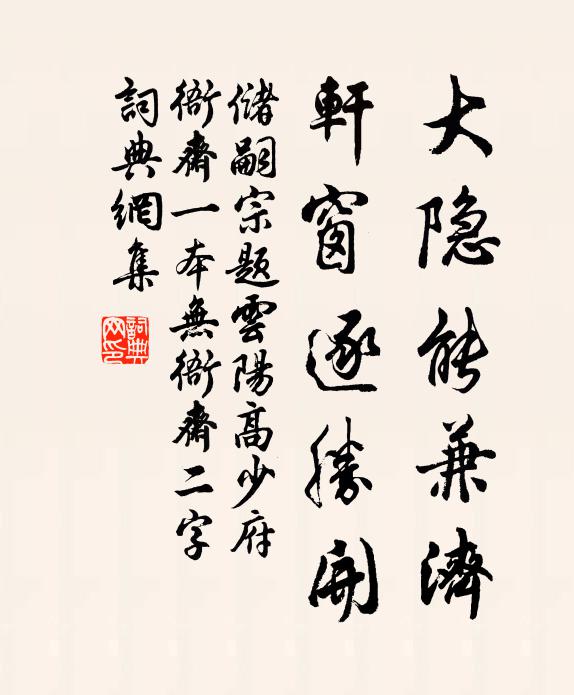 大隐能兼濟
軒窗逐勝開
儲嗣宗題雲陽高少府
衙齋一本無衙齋二字
詞典網集
詞典网印